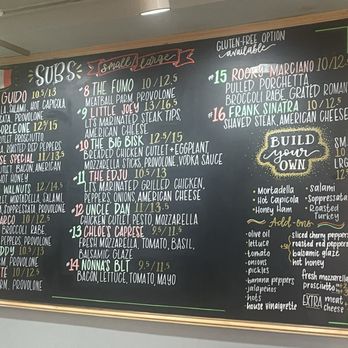 SUBS
small large
GUIDO 10/12.5
SALAMI, HOT CAPICOLA
PROVOLONE
CORLEONE 12.5/15
PROSCIUTTO
ROASTED RED PEPPERS
SPECIAL 11/13.5
AMERICAN HONEY
WALNUTS 12/14.5
MOZZARELLA, SALAMI,
10/12.5
BROCCOLI RABE
PEPPERS, PROVOLONE
10/12.5
PROVOLONE
10/12.5
PROVOLONE
#8 THE FUMO 10/12.5
MEATBALL PARM, PROVOLONE
#9 LITTLE JOEY 13/16.5
LT'S MARINATED STEAK TIPS,
AMERICAN CHEESE
#10 THE BIG BISK 12.5/15
BREADED CHICKEN CUTLET + EGGPLANT,
MOZZARELLA STICKS, PROVOLONE, VODKA SAUCE
#11 THE EDJU 10/12.5
LT'S MARINATED GRILLED CHICKEN,
PEPPERS, ONIONS, AMERICAN CHEESE
#12 UNCLE DAN 11/13.5
CHICKEN CUTLET, PESTO, MOZZARELLA
#13 CHLOE'S CAPRESE 9.5/11.5
FRESH MOZZARELLA, TOMATO, BASIL,
BALSAMIC GLAZE
#14 NONNA'S BLT 9.5/11.5
BACON, LETTUCE, TOMATO, MAYO
GLUTEN-FREE OPTION
available
#15 ROCKY MARCIANO 10/12.5
PULLED PORCHETTA,
BROCCOLI RABE, GRATED ROMANO
#16 FRANK SINATRA 10/12.5
SHAVED STEAK, AMERICAN CHEESE
BUILD
your
OWN
• Mortadella
• Hot Capicola
• Honey Ham
• Salami
• Soppressata
• Roasted
Turkey
Add-ons
• olive oil
• lettuce
• tomato
• onions
• pickles
• banana peppers
• jalapeños
• hots
• house vinaigrette
sliced cherry peppers
roasted red peppers
balsamic glaze
hot honey
fresh mozzarella
prosciutto
EXTRA meat
cheese